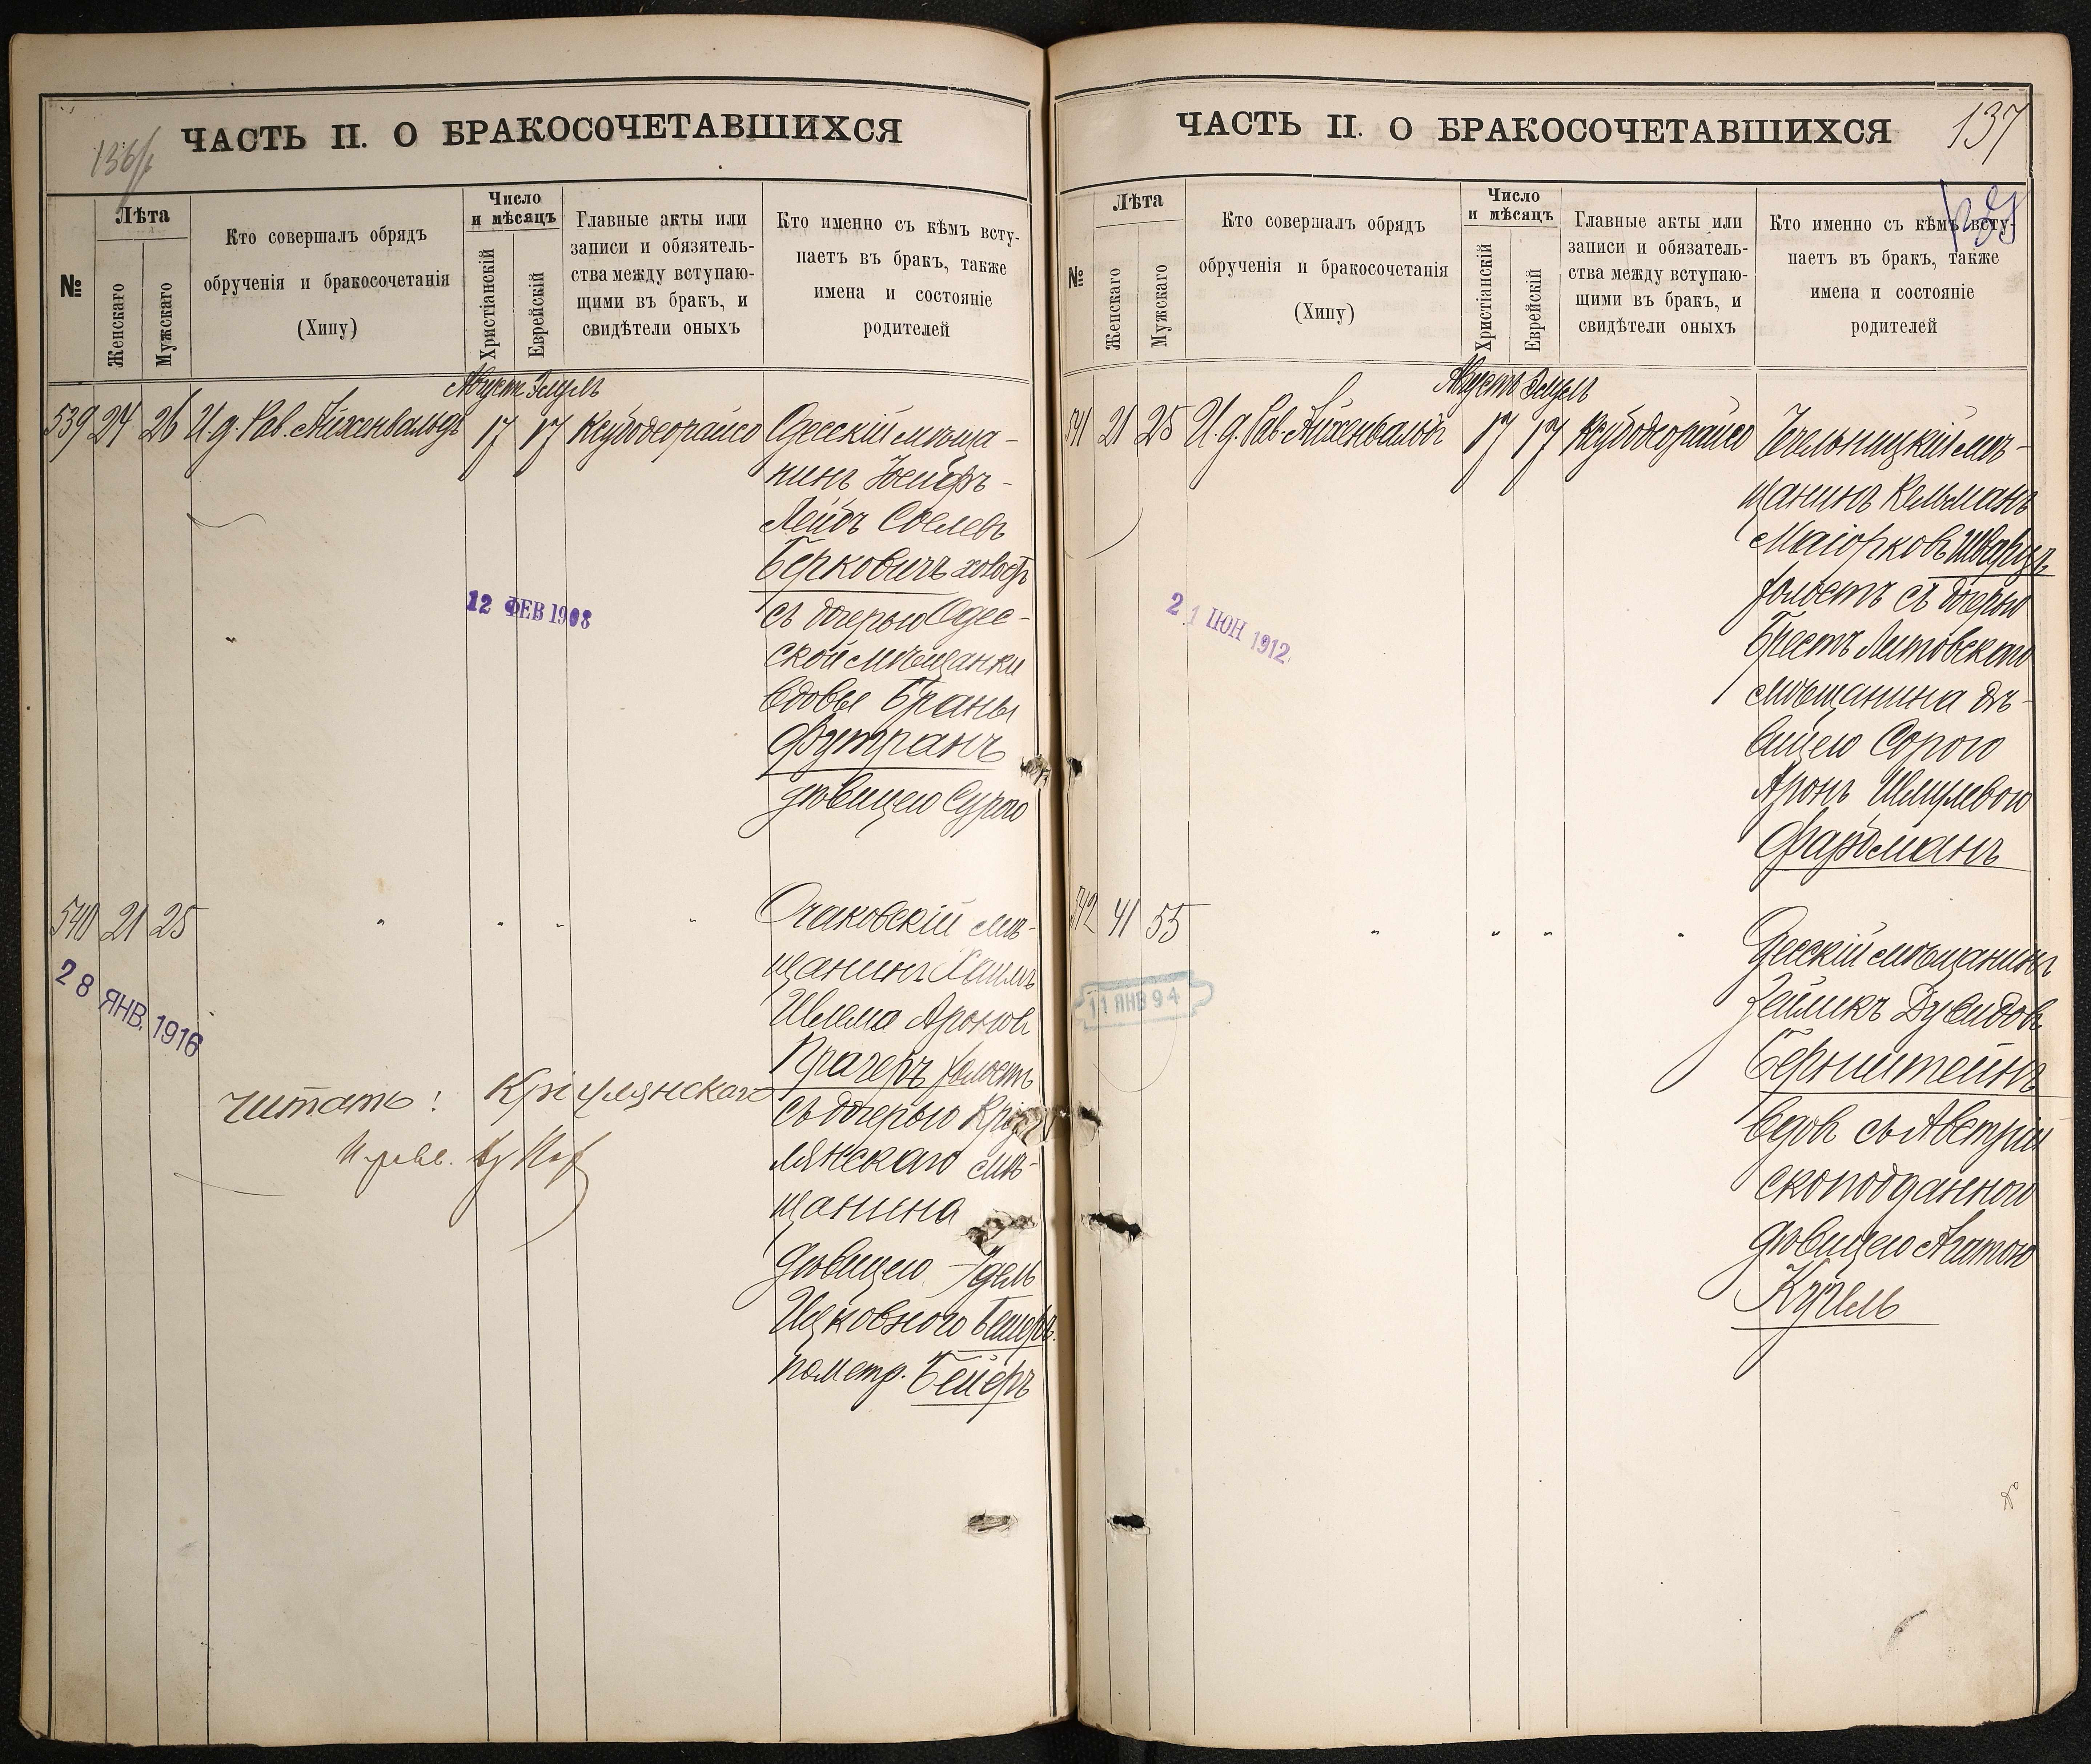 136/
ЧАСТЬ II. О БРАКОСОЧЕТАВШИХСЯ
№
Лѣта
Женскаго
Мужскаго
Кто совершалъ обрядъ
обрученія и бракосочетанія
(Хипу)
Число
и мѣсяцъ
Христіанскій
Еврейскій
Главные акты или
записи и обязатель-
ства между вступаю-
щими въ бракъ, и
свидѣтели оныхъ
Кто именно съ кѣмъ всту-
паетъ въ бракъ, также
имена и состояніе
родителей
Августъ Элулъ
539 24 26 И.д. Рав. Айхенвальдъ 17 17 Ксубодеорайсо Одесскій мѣща-
нинъ
Лейбъ
Берковичъ холост
съ дочерью Одес-
ской мѣщанки
вдовы Браны
Футранъ
дѣвицею Сурою
12 ФЕВ 1908
540 21 25 " " " " Очаковскій мѣ-
щанинъ Хаимъ
Шлема Аронов
Прагеръ холостъ
съ дочерью
лянскаго мѣ-
щанина
дѣвицею Идель
Ицковною Бешеръ
по метр. Бейеръ
28 ЯНВ. 1916
читать: Кріулянскаго
ЧАСТЬ II. О БРАКОСОЧЕТАВШИХСЯ
137
№
Лѣта
Женскаго
Мужскаго
Кто совершалъ обрядъ
обрученія и бракосочетанія
(Хипу)
Число
и мѣсяцъ
Христіанскій
Еврейскій
Главные акты или
записи и обязатель-
ства между вступаю-
щими въ бракъ, и
свидѣтели оныхъ
Кто именно съ кѣмъ всту-
паетъ въ бракъ, также
имена и состояніе
родителей
Августъ Элулъ
541 21 25 И.д. Рав. Айхенвальдъ 17 17 Ксубодеорайсо Чечельницкій мѣ-
щанинъ Кельманъ
Маіорковъ Шварцъ
холостъ съ дочерью
Брестъ Литовскаго
мѣщанина дѣ-
вицею Сорою
Аронъ Шмулевою
Фарбманъ
21 ІЮН 1912
542 41 55 " " " " Одесскій мѣщанинъ
Зейликъ Дувидовъ
Бернштейнъ
вдов съ Австрій
скоподданною
дѣвицею Агатою
Кугель
11 ЯНВ 94